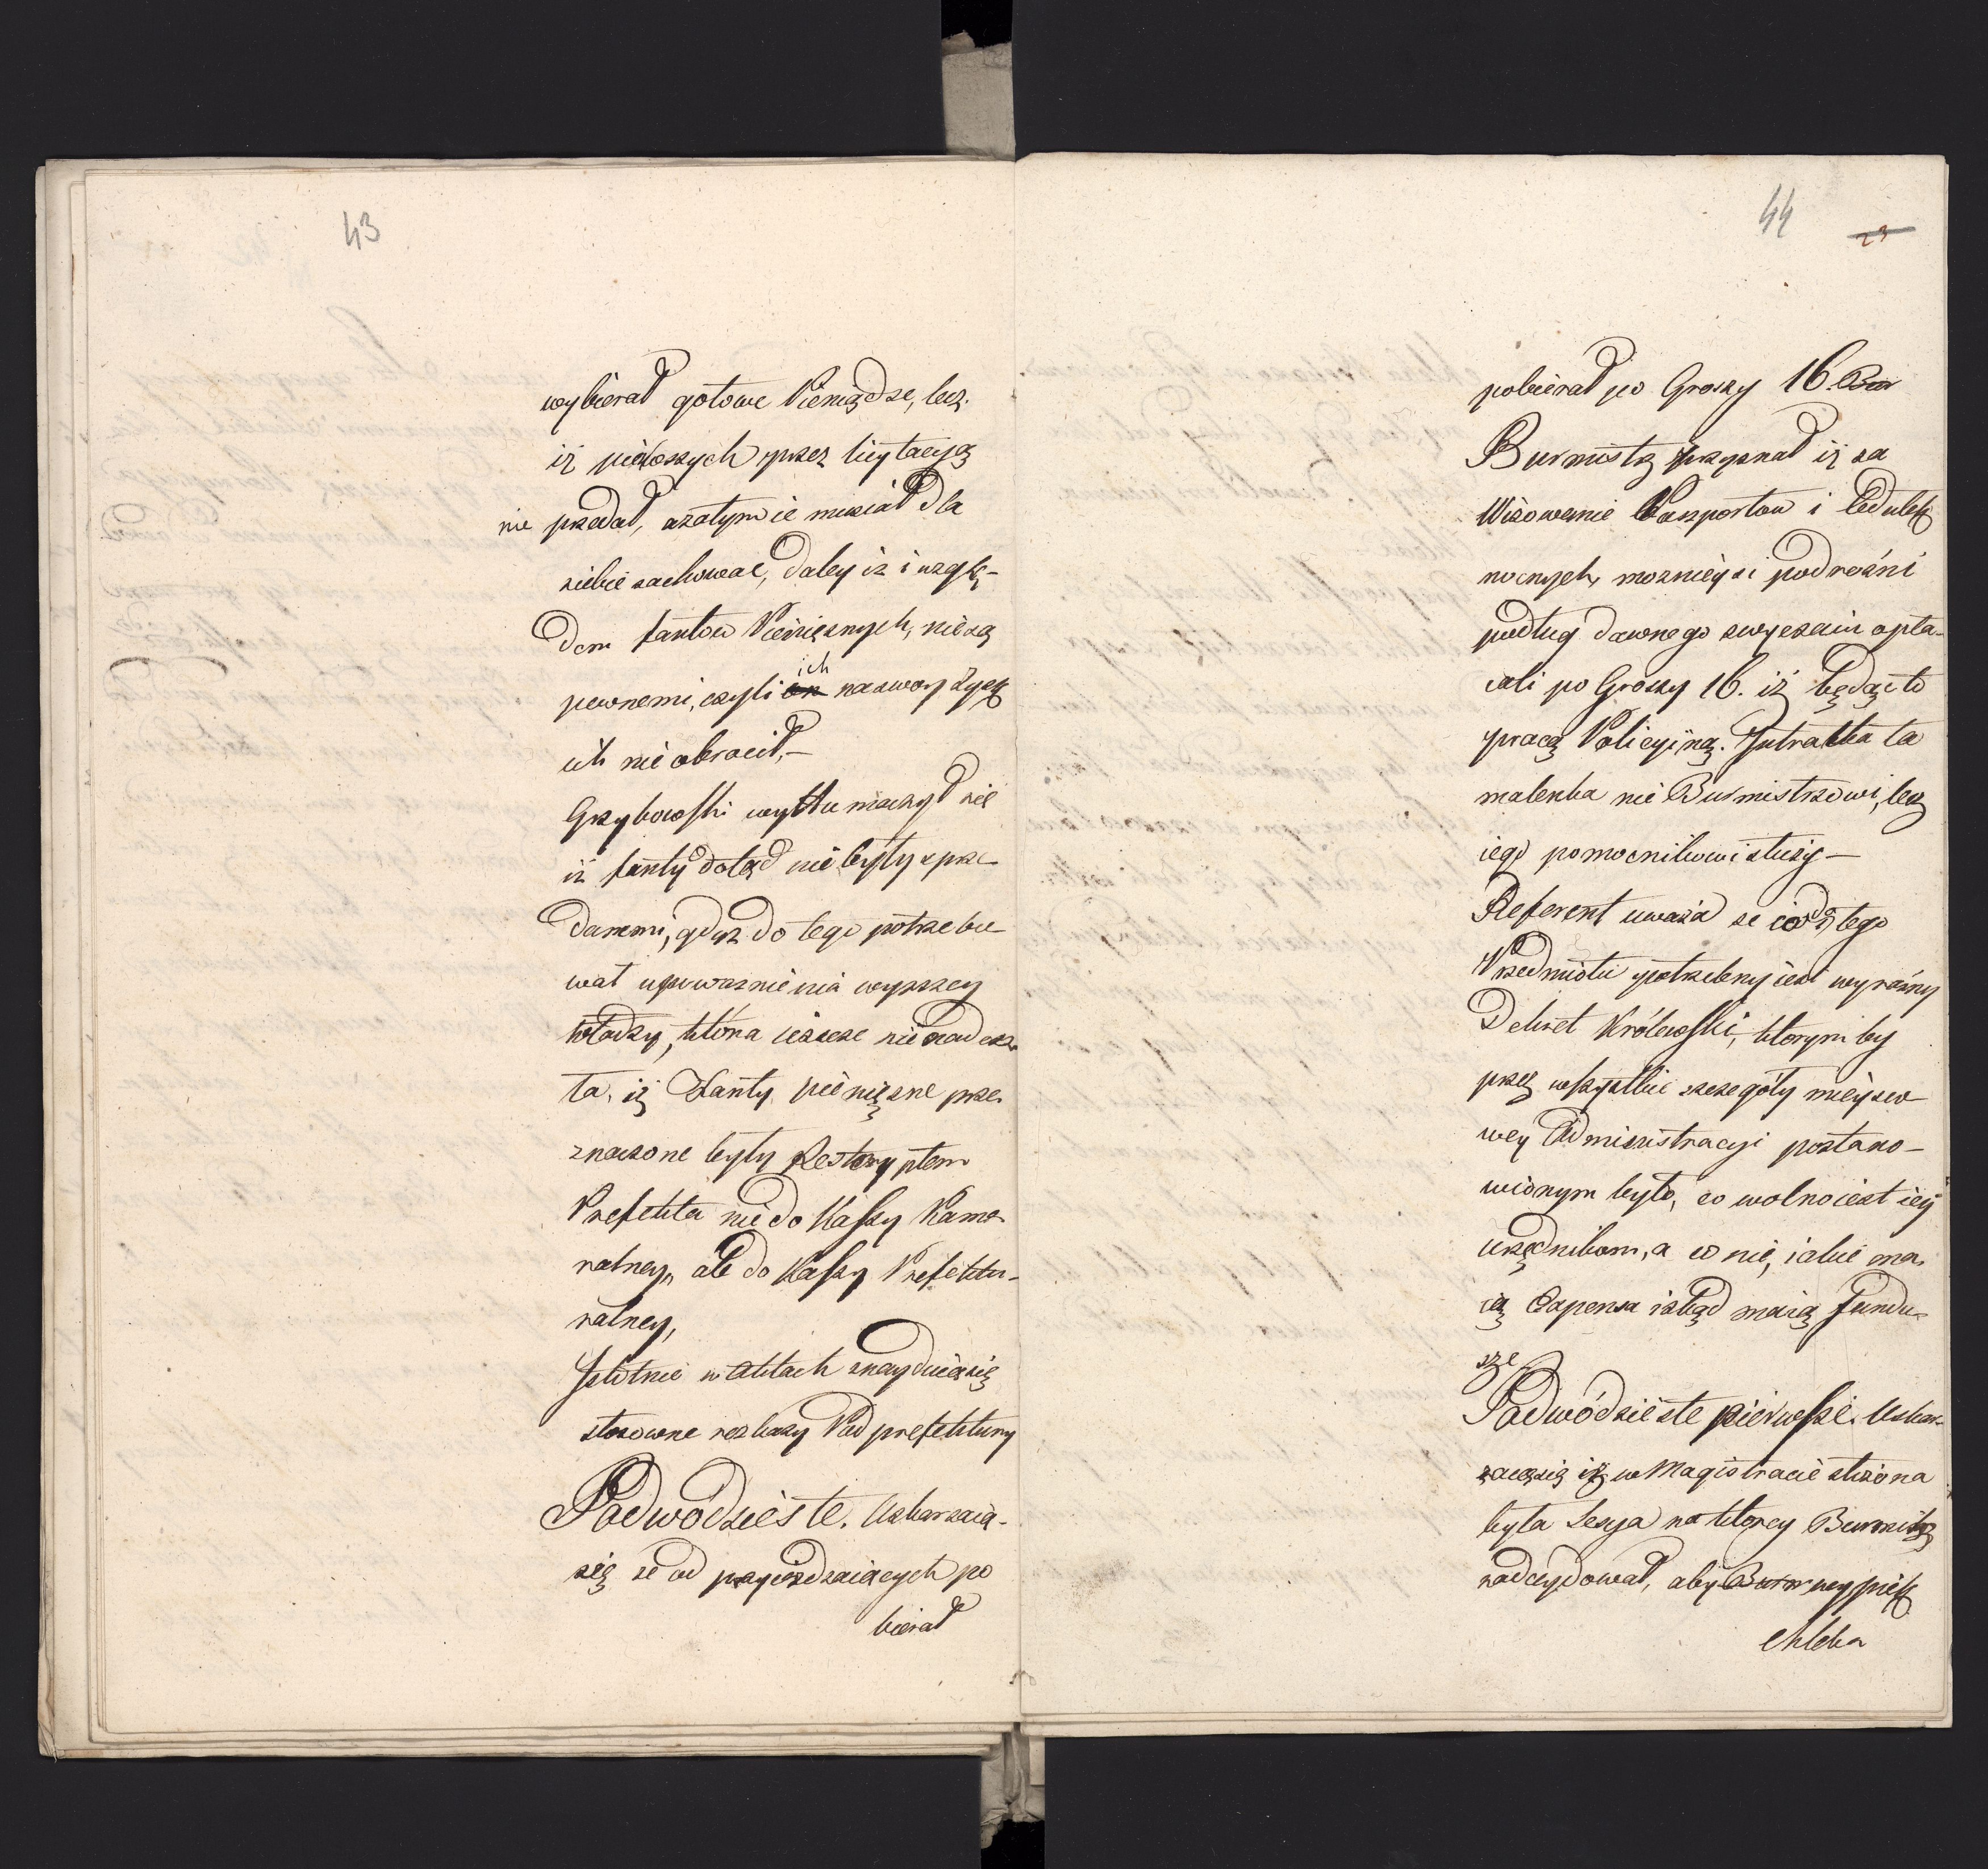 43
wybierał gotowe Pieniądze, lecz.
iż pierwszych przez licytacyą
nie przedał, azatym ie musiał dla
siebie zachować, daley iż i wzglę-
dem fantow Pieniężnych, nie są
pewnemi, czyli ich na swoy Zysk
ich nie obrocił,—
Grzybowski wytłumaczył się
iż fanty dotąd nie były sprze-
danemi, gdyż do tego potrzebo-
wał upoważnienia wyższey
władzy, która ieszcze nie nadesz-
ła, iż Fanty pieniężne prze-
znaczone były Reskryptem
Prefekta nie do Kassy Kame-
ralney, ale do Kassy Prefektu-
ralney,
Istotnie w Aktach znayduią się
stosowne rozkazy Podprefektury
Podwódzieste. Uskarzaią-
się że od przyieżdzaiących po
bierał
44
23
pobierał po Groszy 16
Burmistrz przyznał iż za
Wizowanie Paszportow i Cedulek
nocnych, moznieysi podrożni
podług dawnego zwyczaiu opła-
cali po Groszy 16. iż będąc to
pracą Policyiną. Intratka ta
malenka nie Burmistrzowi, lecz
iego pomocnikowi służy—
Referent uważa że co do tego
Przedmiotu potrzebny iest wyraźny
Dekret Królewski, ktorym by
przez wszystkie szczegoły mieysco-
wey Administracyi postano-
wionym było, co wolno iest iey
urzędnikom, a co nie, iakie ma-
ią Expensa i zkąd maią Fundu-
sze
Podwódzieste pierwsze. Uskar-
zaią się iż w Magistracie złożona
była Sesya na ktorey Burmistrz
zadecydował, aby wypiek
chleba